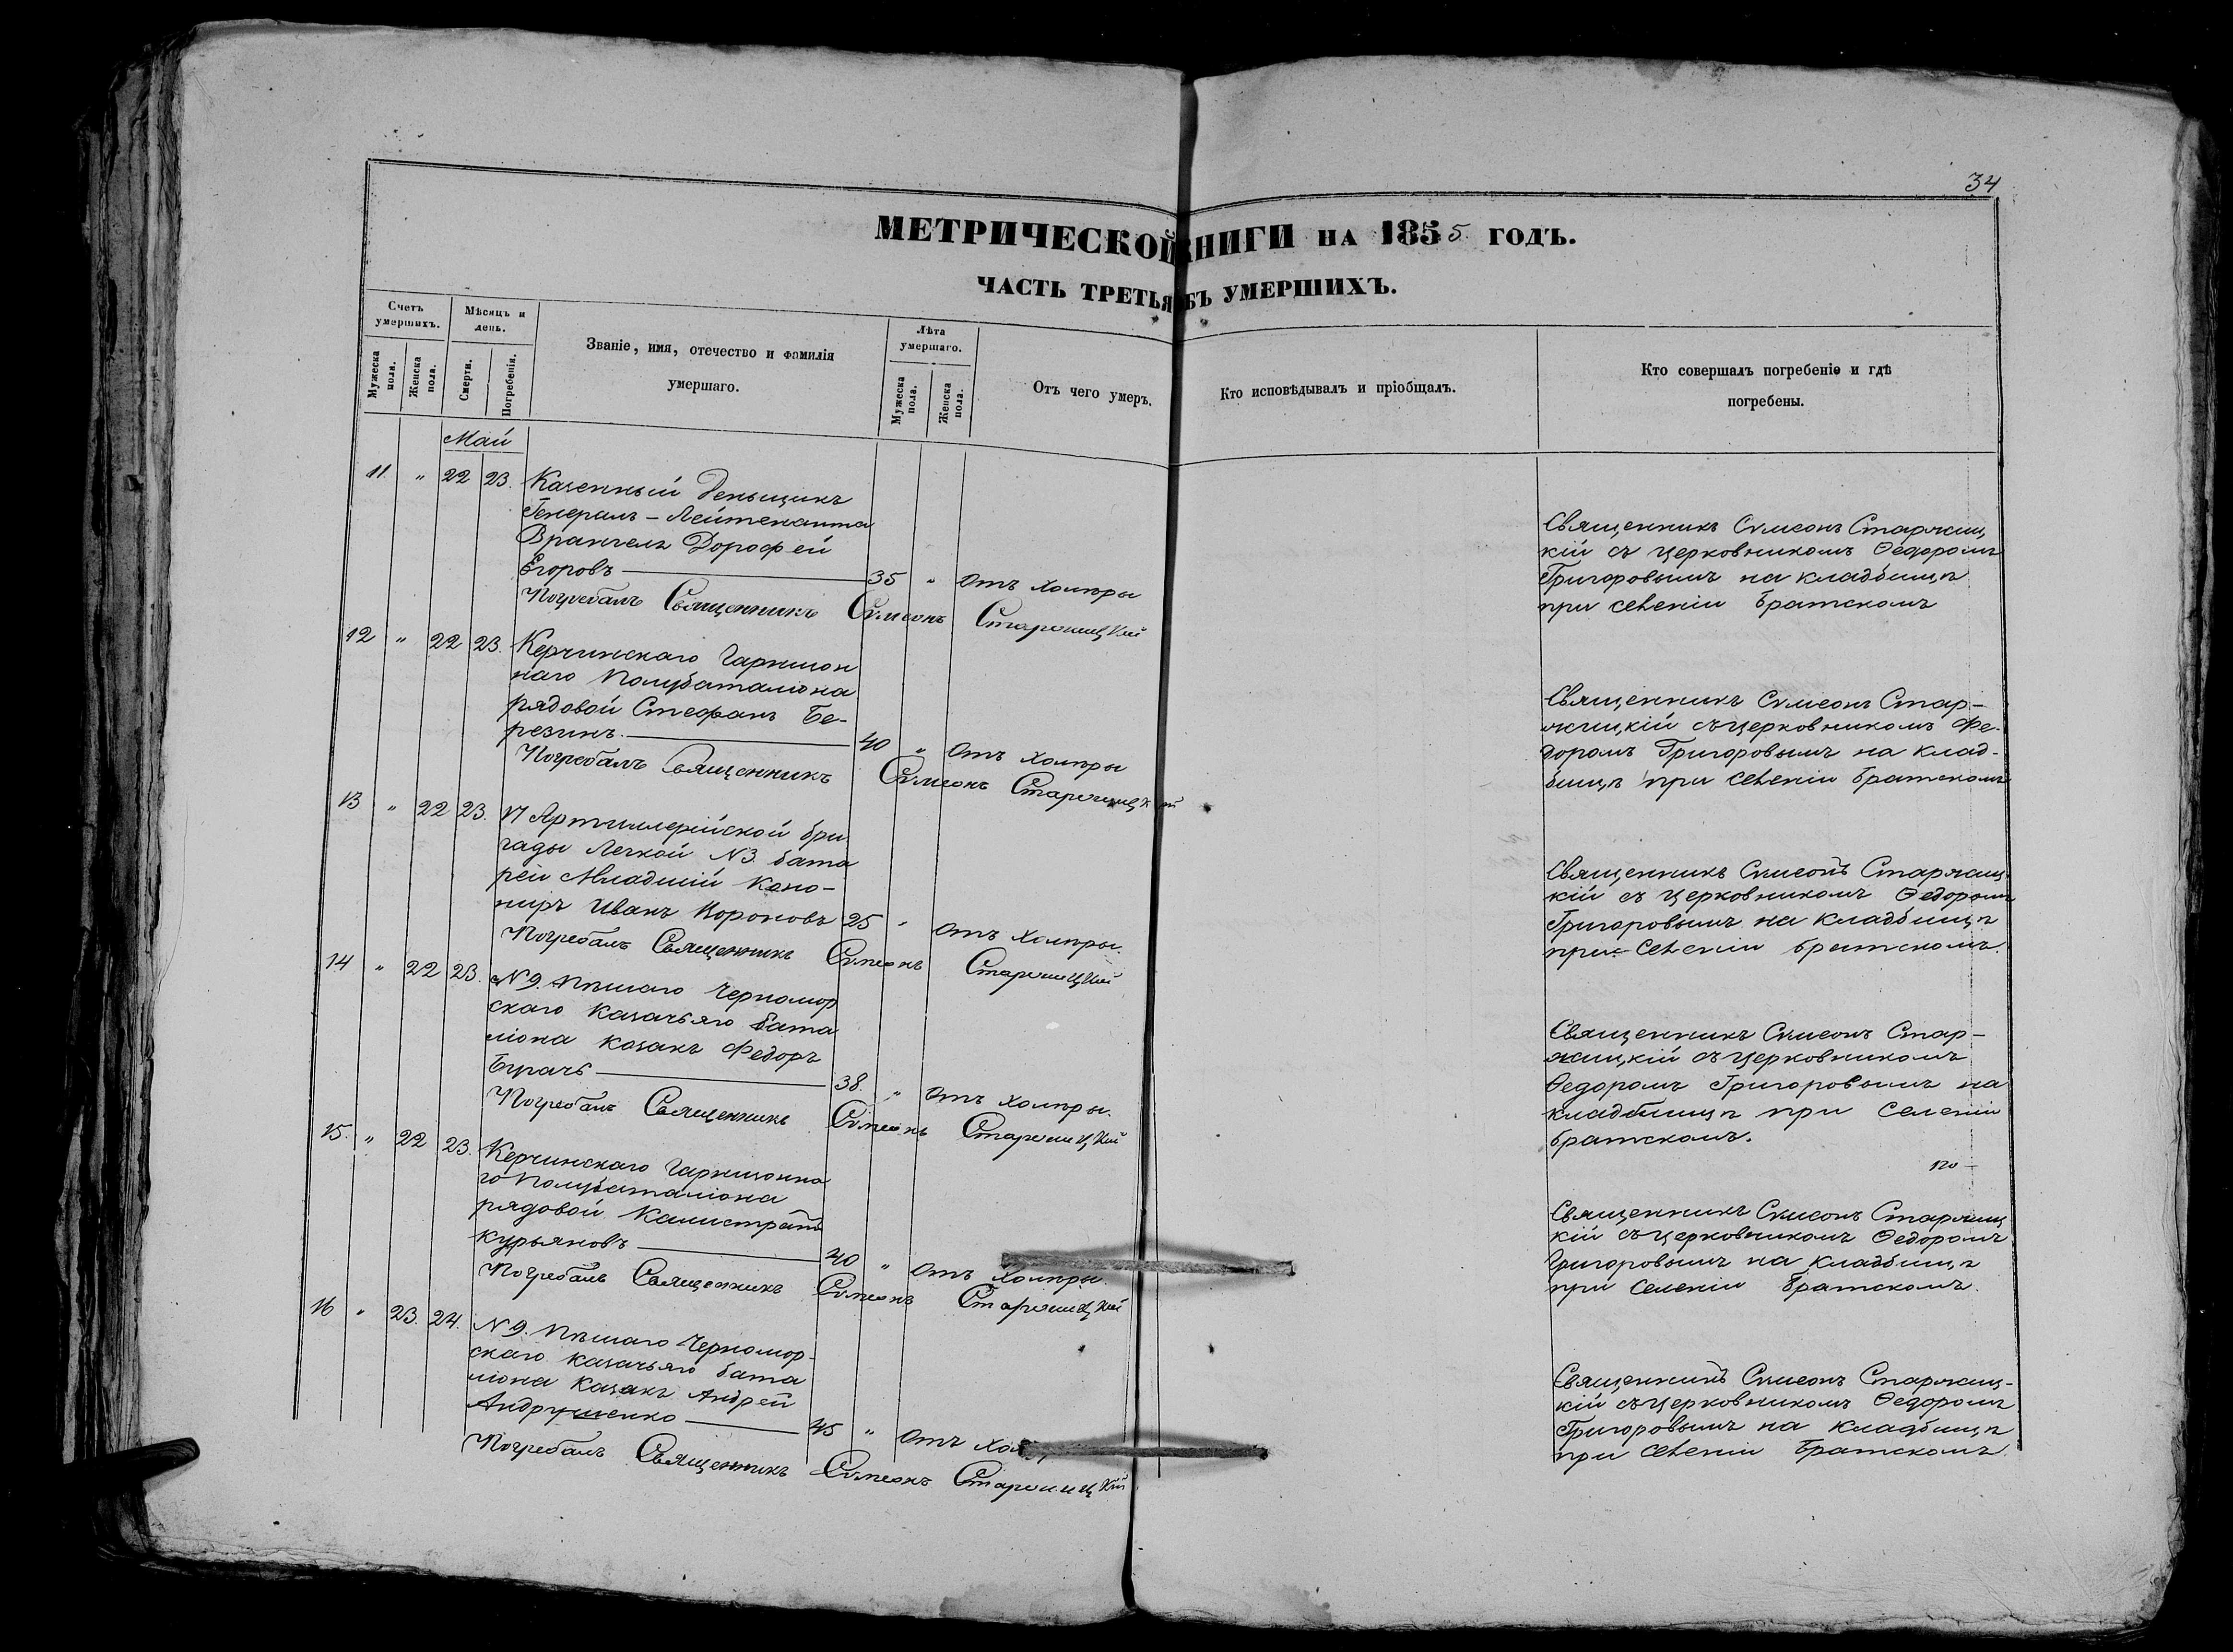 34
МЕТРИЧЕСКОЙ КНИГИ НА 1855 ГОДЪ.
ЧАСТЬ ТРЕТЬЯ ОБЪ УМЕРШИХЪ.
Счетъ умершихъ.
Мужеска пола.
Женска пола.
Мѣсяцъ и день.
Смерти.
Погребенія.
Званіе, имя, отечество и фамилія
умершаго.
Лѣта умершаго.
Мужеска пола.
Женска пола.
Отъ чего умеръ.
Кто исповѣдывалъ и пріобщалъ.
Кто совершалъ погребеніе и гдѣ
погребены.
Май
11 " 22 23. Казенный деньщикъ
Генералъ-Лейтенанта
Врангеля Дорофей
Егоровъ 35 " отъ холеры
Погребалъ Священникъ Симеонъ Старжицкій
Священникъ Симеонъ Старжиц
кій съ церковникомъ Ѳедоромъ
Григоровымъ на кладбищѣ
при селеніи Братскомъ
12 " 22 23. Керчинскаго Гарнизон
наго Полубаталіона
рядовой Стефанъ Бе-
резинъ. 40 " отъ холеры
Погребалъ Священникъ Симеонъ Старжицкій
Священникъ Симеонъ Стар-
жицкій съ церковникомъ Фе-
доромъ Григоровымъ на клад-
бищѣ при селеніи Братскомъ
13 " 22 23. 17 Артиллерійской бри
гады Легкой №3. бата
реи Младшій Кано-
ниръ Иванъ Вороновъ 25 " отъ холеры.
Погребалъ Священникъ Симеонъ Старжицкій
Священникъ Симеонъ Старжиц
кій съ церковникомъ Ѳедоромъ
Григоровымъ на кладбищѣ
при селеніи Братскомъ.
14 " 22 23. №9. Пѣшаго Черномор
скаго казачьяго бата
ліона казакъ Федоръ
Бурачь 38. " отъ холеры.
Погребалъ Священникъ Симеонъ Старжицкій
Священникъ Симеонъ Стар-
жицкій съ церковникомъ
Ѳедоромъ Григоровымъ на
кладбищѣ при селеніи
Братскомъ.
по-
15. " 22 23. Керчинскаго Гарнизонна
го Полубаталіона
рядовой Калистратъ
Курьяновъ 40 " отъ холеры.
Погребалъ Священникъ Симеонъ Старжицкій
Священникъ Симеонъ Старжиц
кій съ церковникомъ Ѳедоромъ
Григоровымъ на кладбищѣ
при селеніи Братскомъ.
16 " 23. 24. №9. Пѣшаго Черномор-
скаго казачьяго бата
ліона казакъ Андрей
Андрущенко 45 " отъ хол
Погребалъ Священникъ Симеонъ Старжицкій
Священникъ Симеонъ Старжиц-
кій съ церковникомъ Ѳедоромъ
Григоровымъ на кладбищѣ
при селеніи Братскомъ